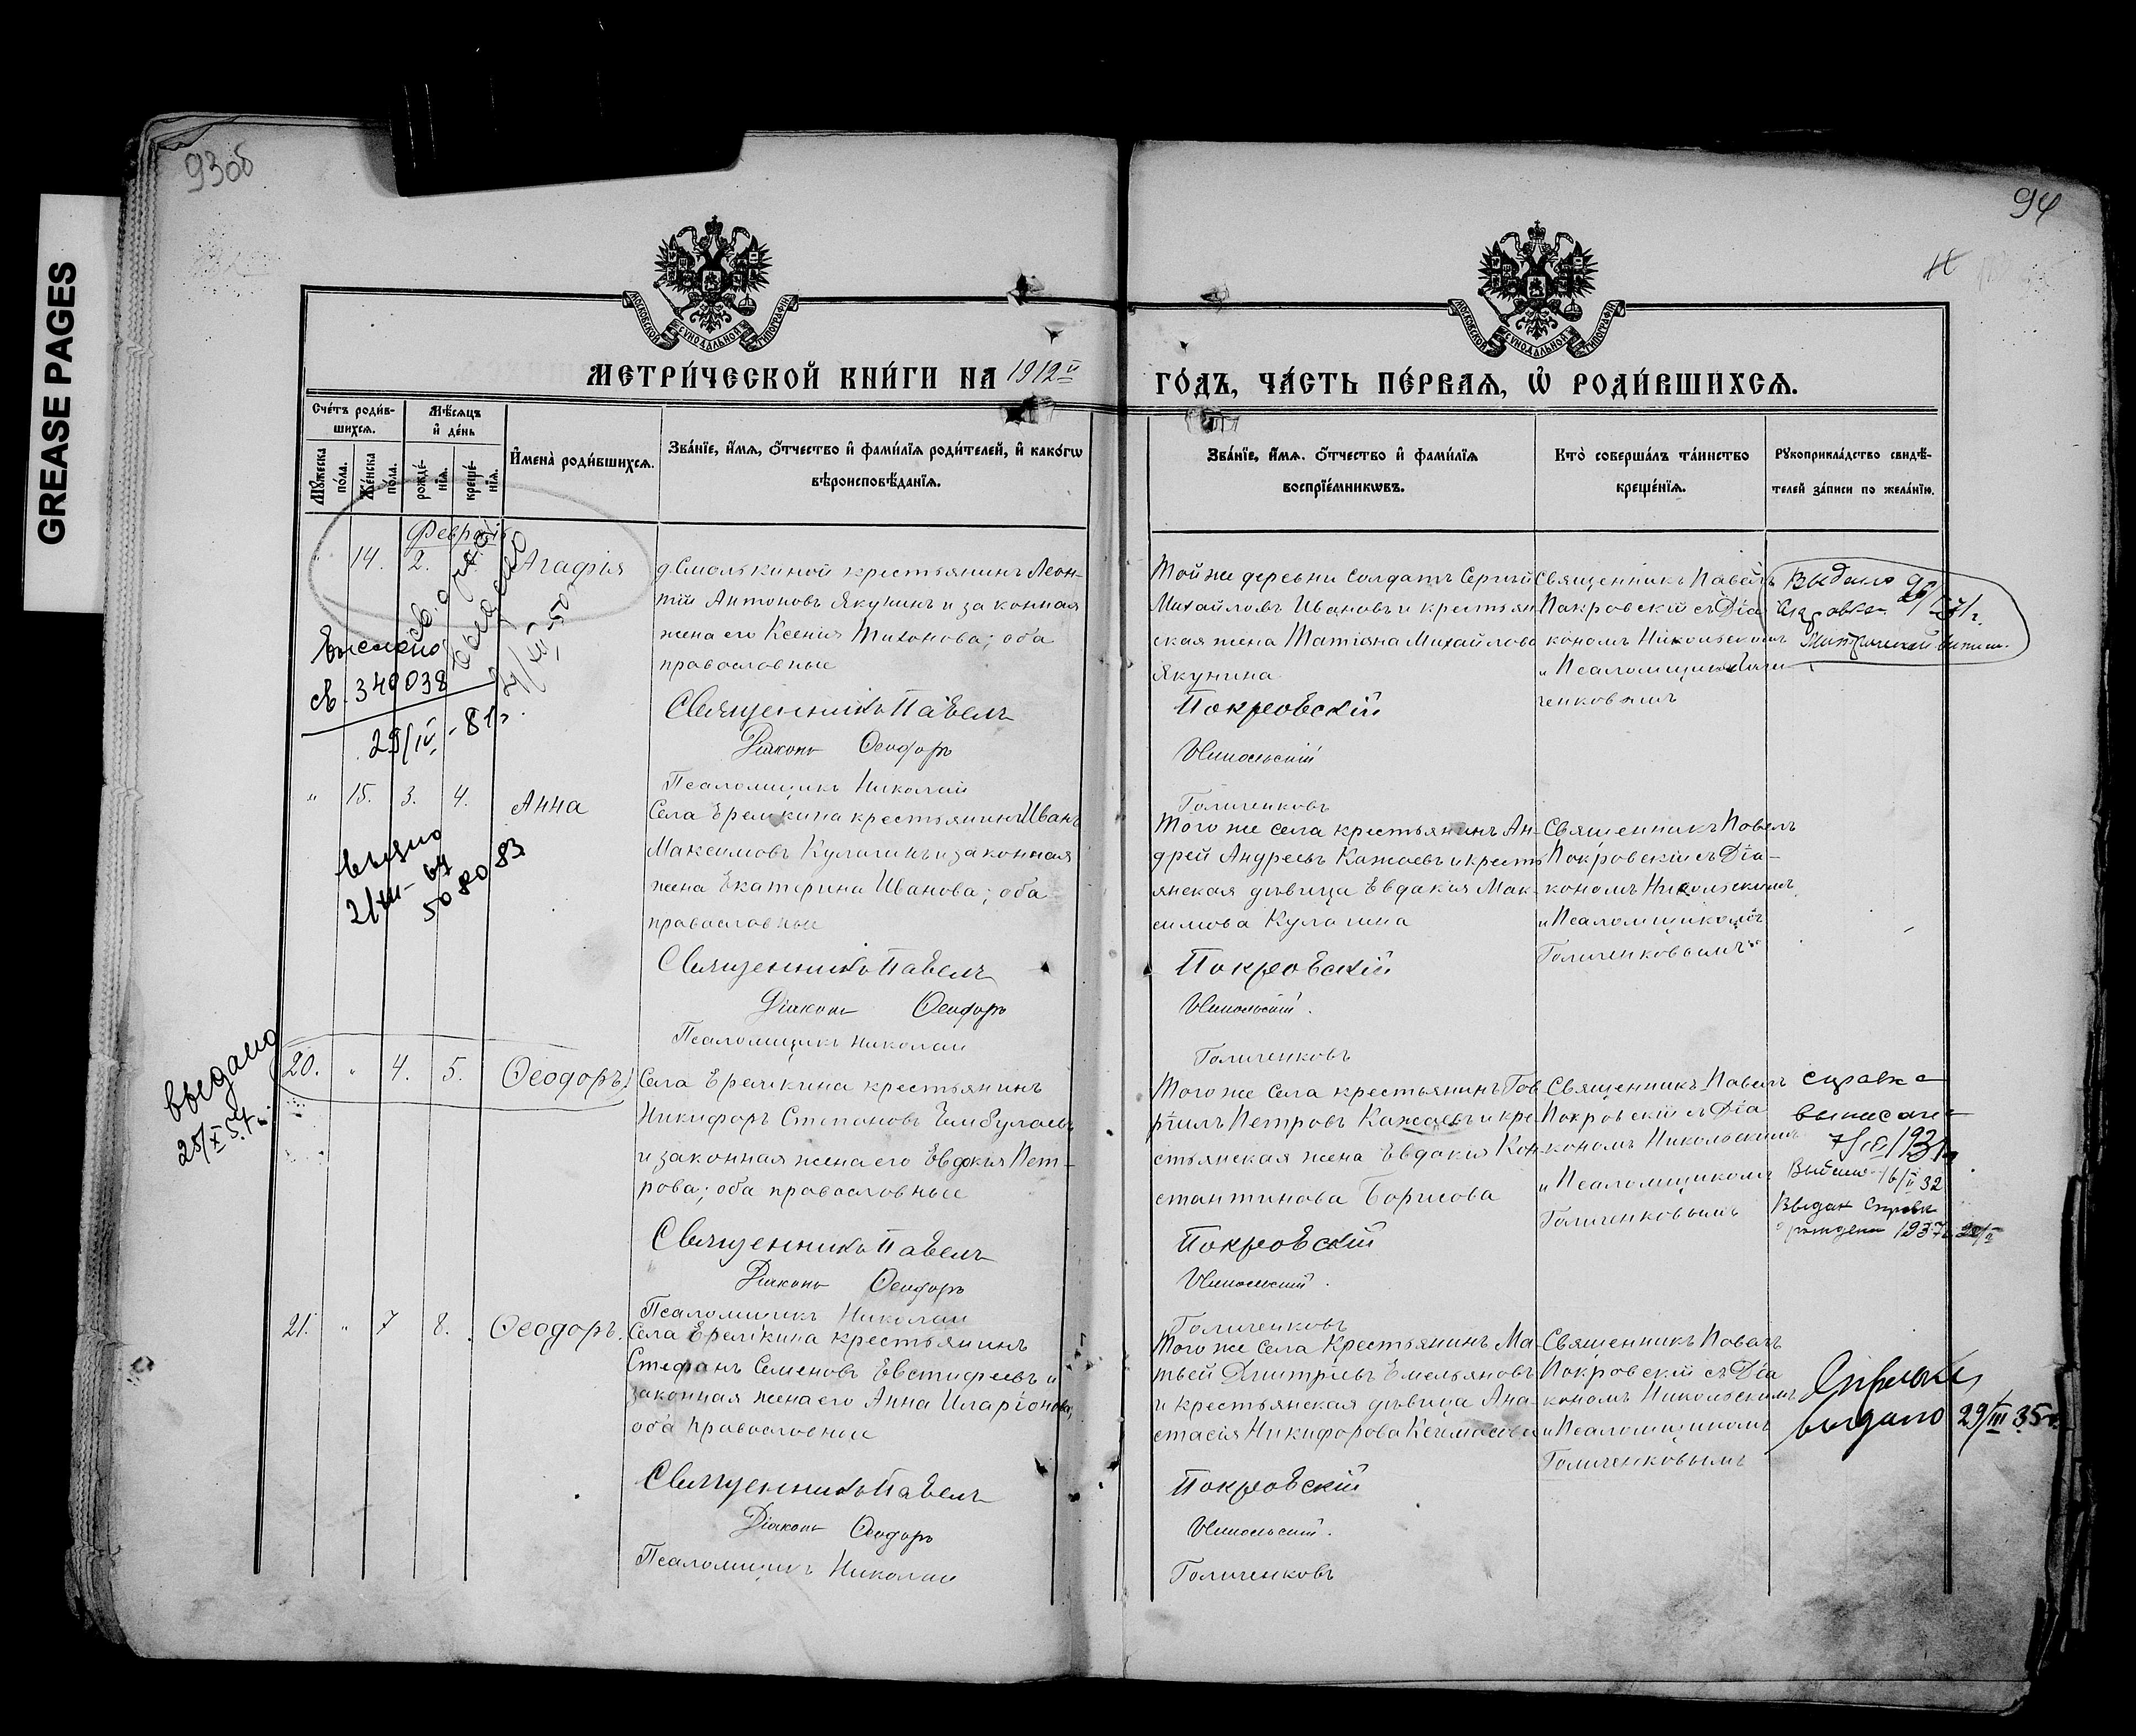 GREASE PAGES
93об
94
МОСКОВСКОЙ СѴНОДАЛЬНОЙ ТИПОГРАФІИ
МОСКОВСКОЙ СѴНОДАЛЬНОЙ ТИПОГРАФІИ
МЕТРИ́ЧЕСКОЙ КНИ́ГИ НА 1912й
ГО́ДЪ, ЧА́СТЬ ПЕ́РВАѦ, Ѽ РОДИ́ВШИХСѦ.
Сче́тъ роди́в-
шихсѧ.
Мѣ́сѧцъ
и҆ де́нь
Мꙋ́жеска
по́ла.
Же́нска
по́ла.
рожде́-
нїѧ.
креще́-
нїѧ.
И҆мена̀ роди́вшихсѧ.
Зва́нїе, и҆́мѧ, ѻ҆́тчество и҆ фами́лїѧ роди́телей, и҆ како́гѡ
вѣроисповѣ́данїѧ.
Зва́нїе, и҆́мѧ. ѻ҆́тчество и҆ фами́лїѧ
воспрїе́мникѡвъ.
Кто̀ соверша́лъ та́инство
креще́нїѧ.
Рꙋкоприкла́дство свидѣ́-
телей за́писи по жела́нїю.
Февраль
" 14. 2.
Агафія
д. Смолькиной крестьянинъ Леон-
тій Антоновъ Якунинъ и законная
жена его Ксенія Тихонова; оба
православные
Священникъ Павелъ
Діаконъ Ѳеодоръ
Псаломщикъ Николай
Той же деревни Солдатъ Сергѣй
Михайловъ Ивановъ и крестьян
ская жена Татіяна Михайлова
Якунина
Покровскій
Никольскій
Голиченковъ
Священникъ Павелъ
Покровскій съ Діа
кономъ Никольскимъ
и Псаломщикомъ Голи
ченковымъ
Выслано
св. 340038
29/IV - 81г.
св. о рожд
выслано
Выдано
справка
" 15. 3. 4.
Анна
Села Еремкина крестьянинъ Иванъ
Максимовъ Кулагинъ и законная
жена Екатерина Иванова; оба
православные
Священникъ Павелъ
Діаконъ Ѳеодоръ
Псаломщикъ Николай
Того же села крестьянинъ Ан-
дрей Андреевъ Кажаевъ и кресть
янская дѣвица Евдокия Мак-
симова Кулагина
Покровскій
Никольскій.
Голиченковъ
Священникъ Павелъ
Покровскій съ Діа-
кономъ Никольскимъ
и Псаломщикомъ
Голиченковымъ
выдано
508083
выдано
25/X 54г.
20. " 4. 5.
Ѳеодоръ
Села Еремкина крестьянинъ
Никифоръ Степановъ Ембулаевъ
и законная жена его Евдокія Пет-
рова; оба православные
Священникъ Павелъ
Діаконъ Ѳеодоръ
Псаломщикъ Николай
Того же села крестьянинъ Гав
ріилъ Петровъ Кажаевъ и кре
стьянская жена Евдокия Кон-
стантинова Борисова
Покровскій
Никольскій.
Голиченковъ
Священникъ Павелъ
Покровскій съ Діа
кономъ Никольскимъ
и Псаломщикомъ
Голиченковымъ
справка
выписана
Выдана 16/II 32
Выдан Справк
о рождении 1937г.
21. " 7 8.
Ѳеодоръ.
Села Еремкина крестьянинъ
Стефанъ Семеновъ Евстифеевъ и
законная жена его Анна Иларіонова,
оба православные
Священникъ Павелъ
Діаконъ Ѳеодоръ
Псаломщикъ Николай
Того же села Крестьянинъ Ма-
твей Дмитріевъ Емельяновъ
и крестьянская дѣвица Ана-
стасія Никифорова
Покровскій
Никольскій.
Голиченковъ
Священникъ Павелъ
Покровскій съ Діа
кономъ Никольскимъ
и Псаломщикомъ
Голиченковымъ
Справка
выдано 29/III 35г.